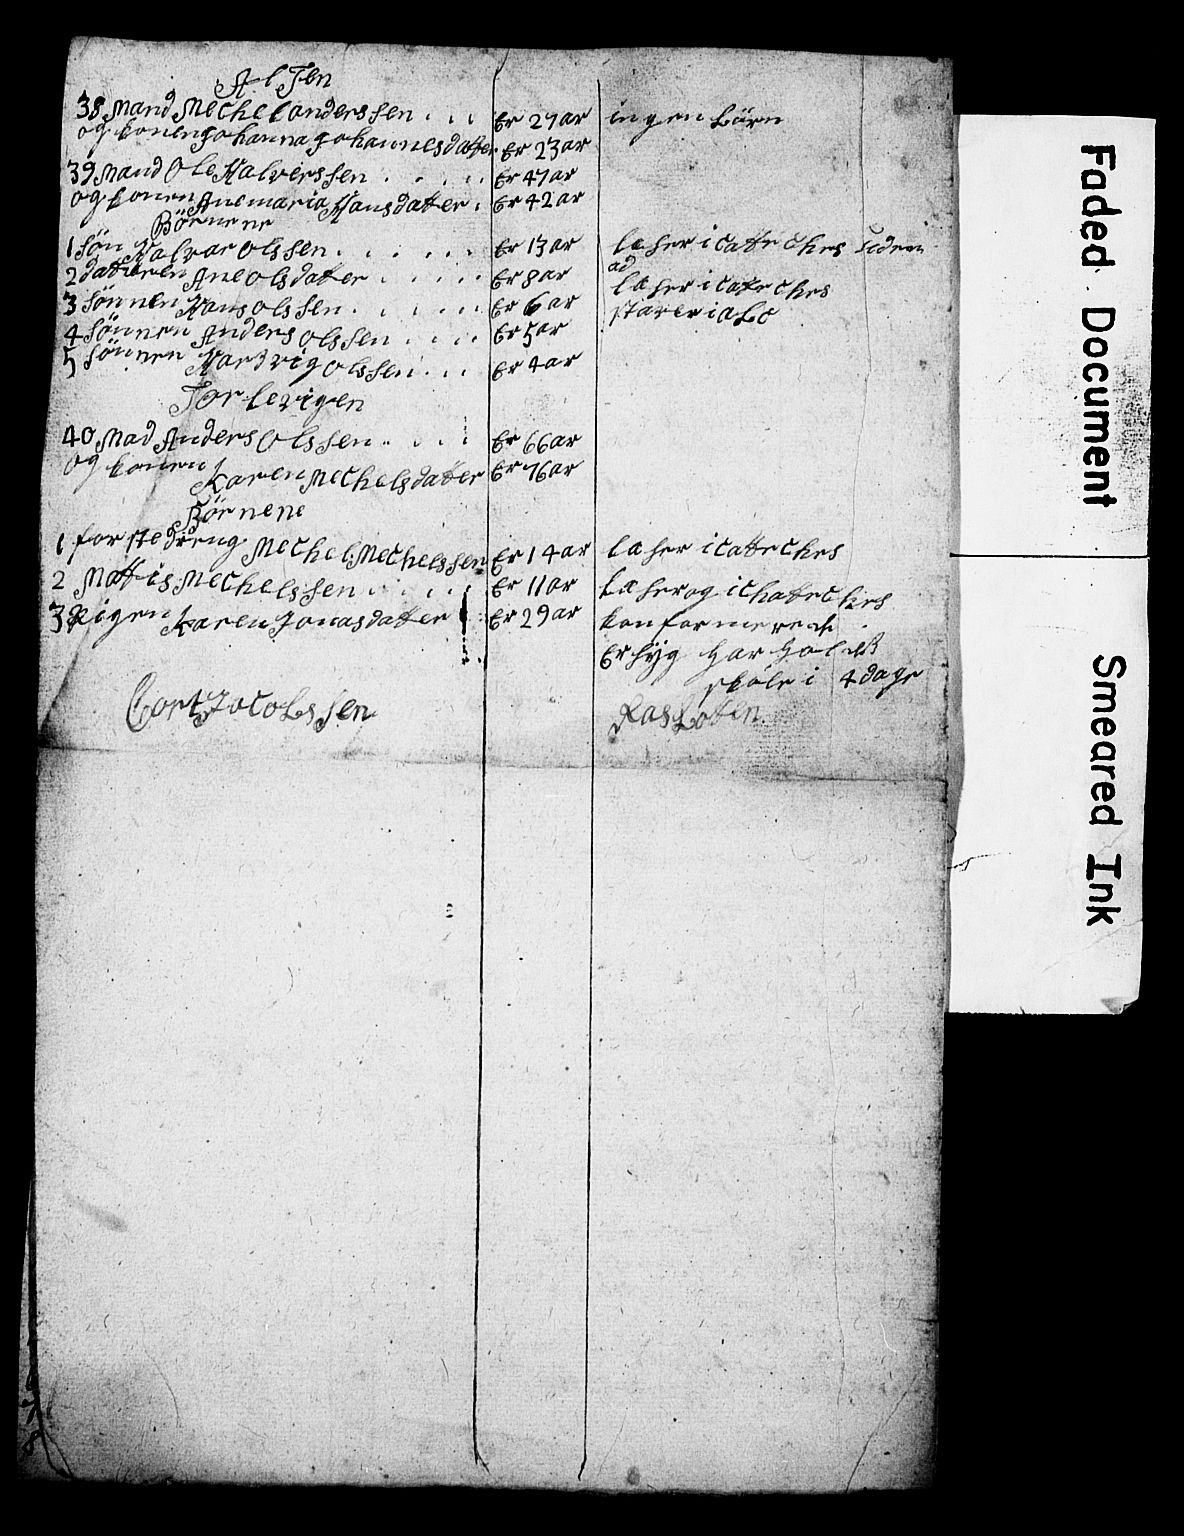 Al Ten
38 Mand Mechel anderssen . . . Er 27 ar ingen börn
og konen Johanna Johannesdatter Er 23 ar
39 Mand Ole Halverssen . . . . . Er 47 ar
og konen Anemaria Hansdatter . Er 42 ar
Börnene
1 sön Halvar olssen . . . . . Er 13 ar læser i catteches uden
ad
2 datteren Ane olsdatter . . . . Er 8 ar læser i catteches
3 sönnen Hans olssen . . . . . Er 6 ar staver i abc
4 sönnen Anders olssen . . . . Er 5 ar
5 sönnen Hartvig olssen . . . Er 4 ar
Torlevigen
40 Mad Anders Olssen . . . . Er 66 ar
og konen Karen Mechelsdatter Er 76 ar
Börnene
1 forste dreng Mechel Mechelssen Er 14 ar læser i catteches
2 Mattis Mechelssen . . . . . Er 11 ar læser og i chatteches
3 Pigen Karen Jonasdatter Er 29 ar konformerede
Er syg har holdt
skole i 4 dage
Cort Jacobssen
Faded Document
Smeared Ink
7
8